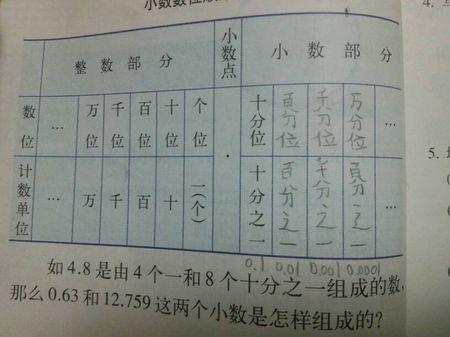 小数数位
整数部分 小数点 小数部分
数位 … 万位 千位 百位 十位 个位 · 十分位 百分位 千分位 万分位 …
计数单位 … 万 千 百 十 一(个) 十分之一 百分之一 千分之一 分之一 …
0.1 0.01 0.001 0.0001
如4.8是由4个一和8个十分之一组成的数,
那么0.63和12.759这两个小数是怎样组成的?
4.
5.